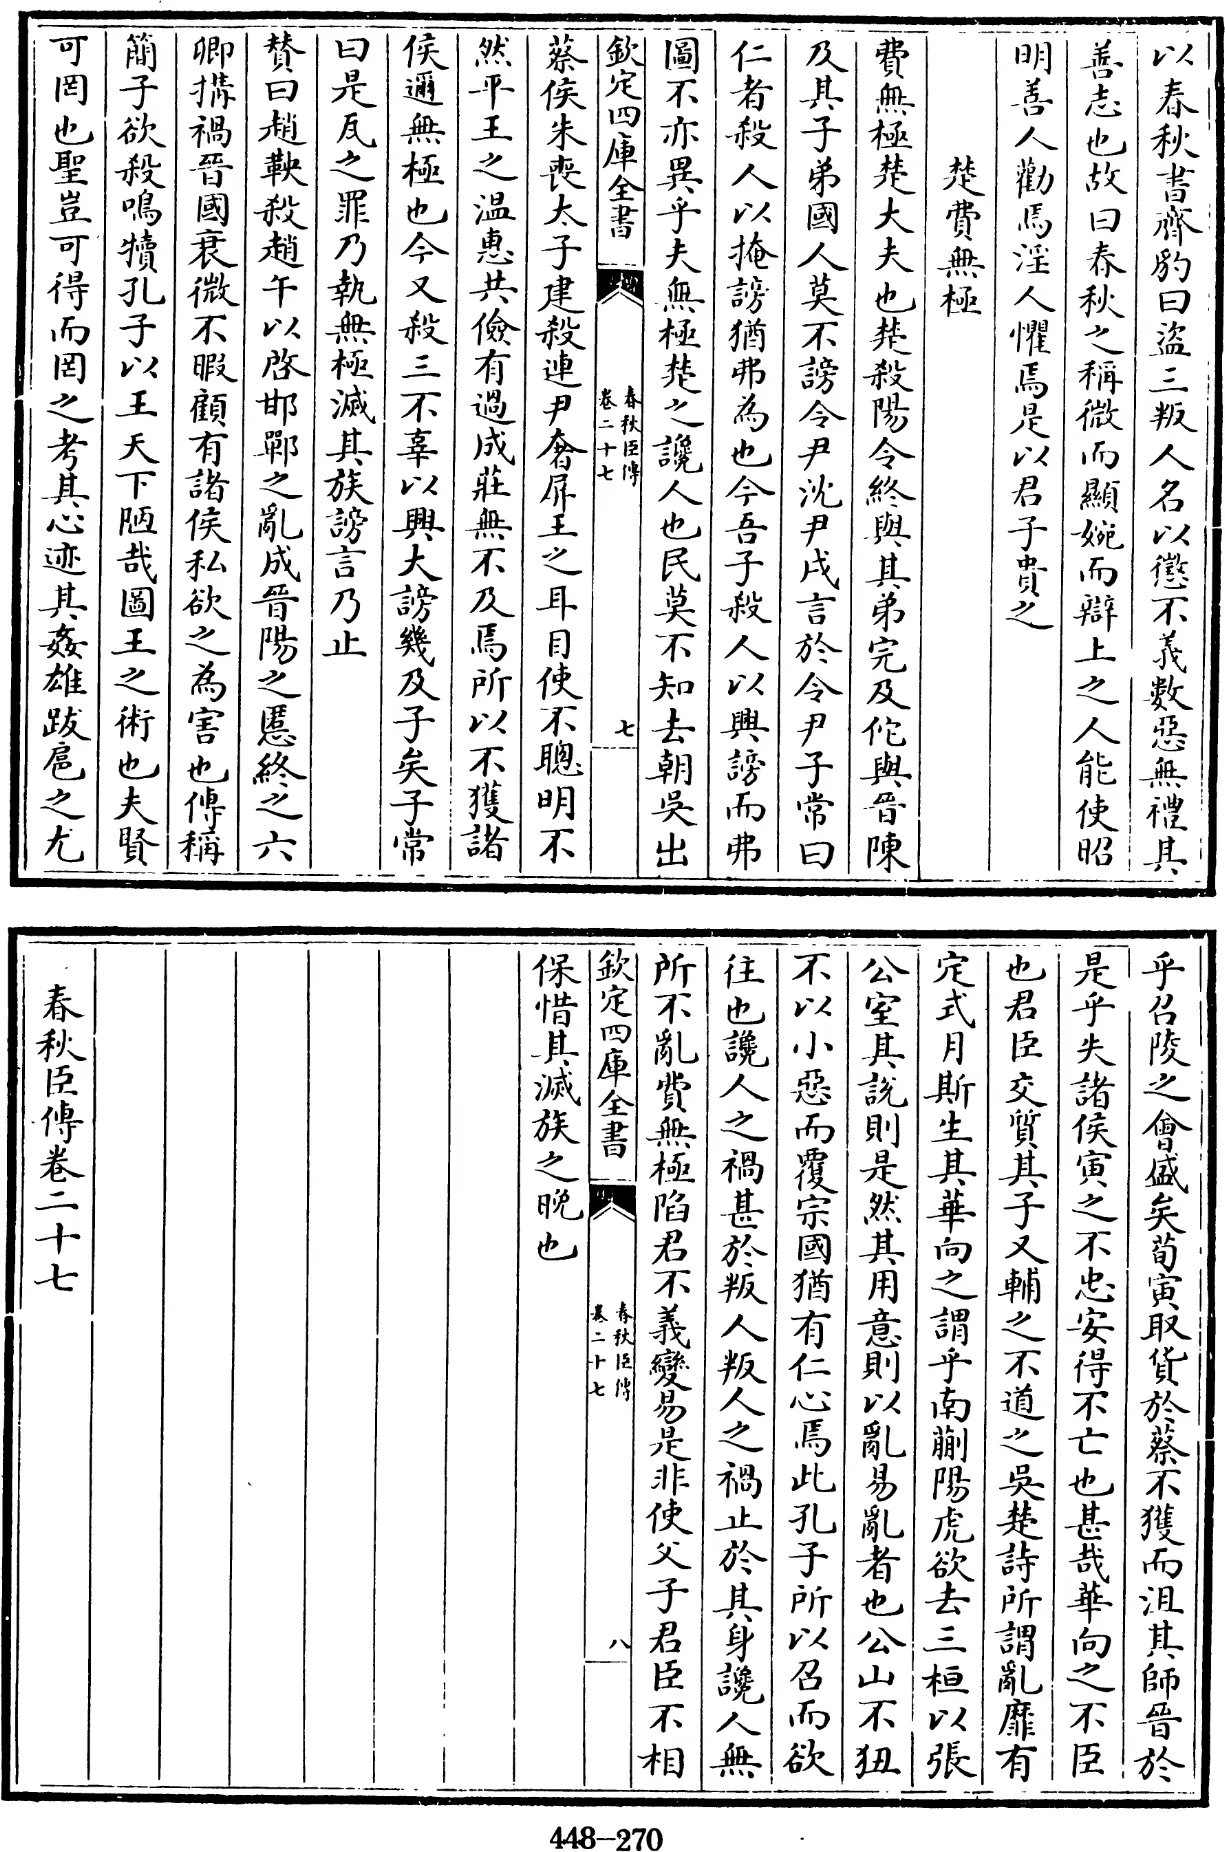 以春秋書齊豹曰盜三叛人名以懲不義數惡無禮其
善志也故曰春秋之稱微而顯婉而辯上之人能使昭
明善人勸焉淫人懼焉是以君子貴之
楚費無極
費無極楚大夫也楚殺陽令終與其弟完及佗與晉陳
及其子弟國人莫不謗令尹沈尹戌言於令尹子常曰
仁者殺人以掩謗猶弗為也今吾子殺人以興謗而弗
圖不亦異乎夫無極楚之讒人也民莫不知去朝吳出
欽定四庫全書
春秋臣傳
卷二十七
七
蔡侯朱喪太子建殺連尹奢屏王之耳目使不聰明不
然平王之溫惠共儉有過成莊無不及焉所以不獲諸
侯邇無極也今又殺三不辜以興大謗幾及子矣子常
曰是瓦之罪乃執無極滅其族謗言乃止
贊曰趙鞅殺趙午以啓邯鄲之亂成晉陽之慝終之六
卿搆禍晉國衰微不暇顧有諸侯私欲之為害也傳稱
簡子欲殺鳴犢孔子以王天下陋哉圖王之術也夫賢
可罔也聖豈可得而罔之考其心迹其姦雄跋扈之尤
乎召陵之會盛矣荀寅取貨於蔡不獲而沮其師晉於
是乎失諸侯寅之不忠安得不亡也甚哉華向之不臣
也君臣交質其子又輔之不道之吳楚詩所謂亂靡有
定式月斯生其華向之謂乎南蒯陽虎欲去三桓以張
公室其說則是然其用意則以亂易亂者也公山不狃
不以小惡而覆宗國猶有仁心焉此孔子所以召而欲
往也讒人之禍甚於叛人叛人之禍止於其身讒人無
所不亂費無極陷君不義變易是非使父子君臣不相
欽定四庫全書
春秋臣傳
卷二十七
八
保惜其滅族之晚也
春秋臣傳卷二十七
448-270